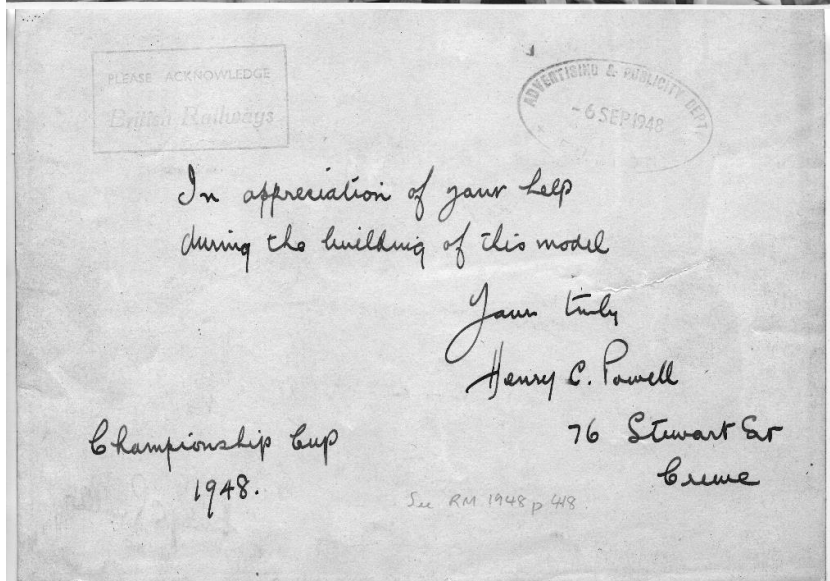 PLEASE ACKNOWLEDGE
British Railways
ADVERTISING & PUBLICITY DEPT
-6 SEP 1948
In appreciation of your help
during the building of this model
Yours truly
Henry C. Powell
76 Stewart St
Crewe
Championship Cup
1948.
See RM 1948 p 418.